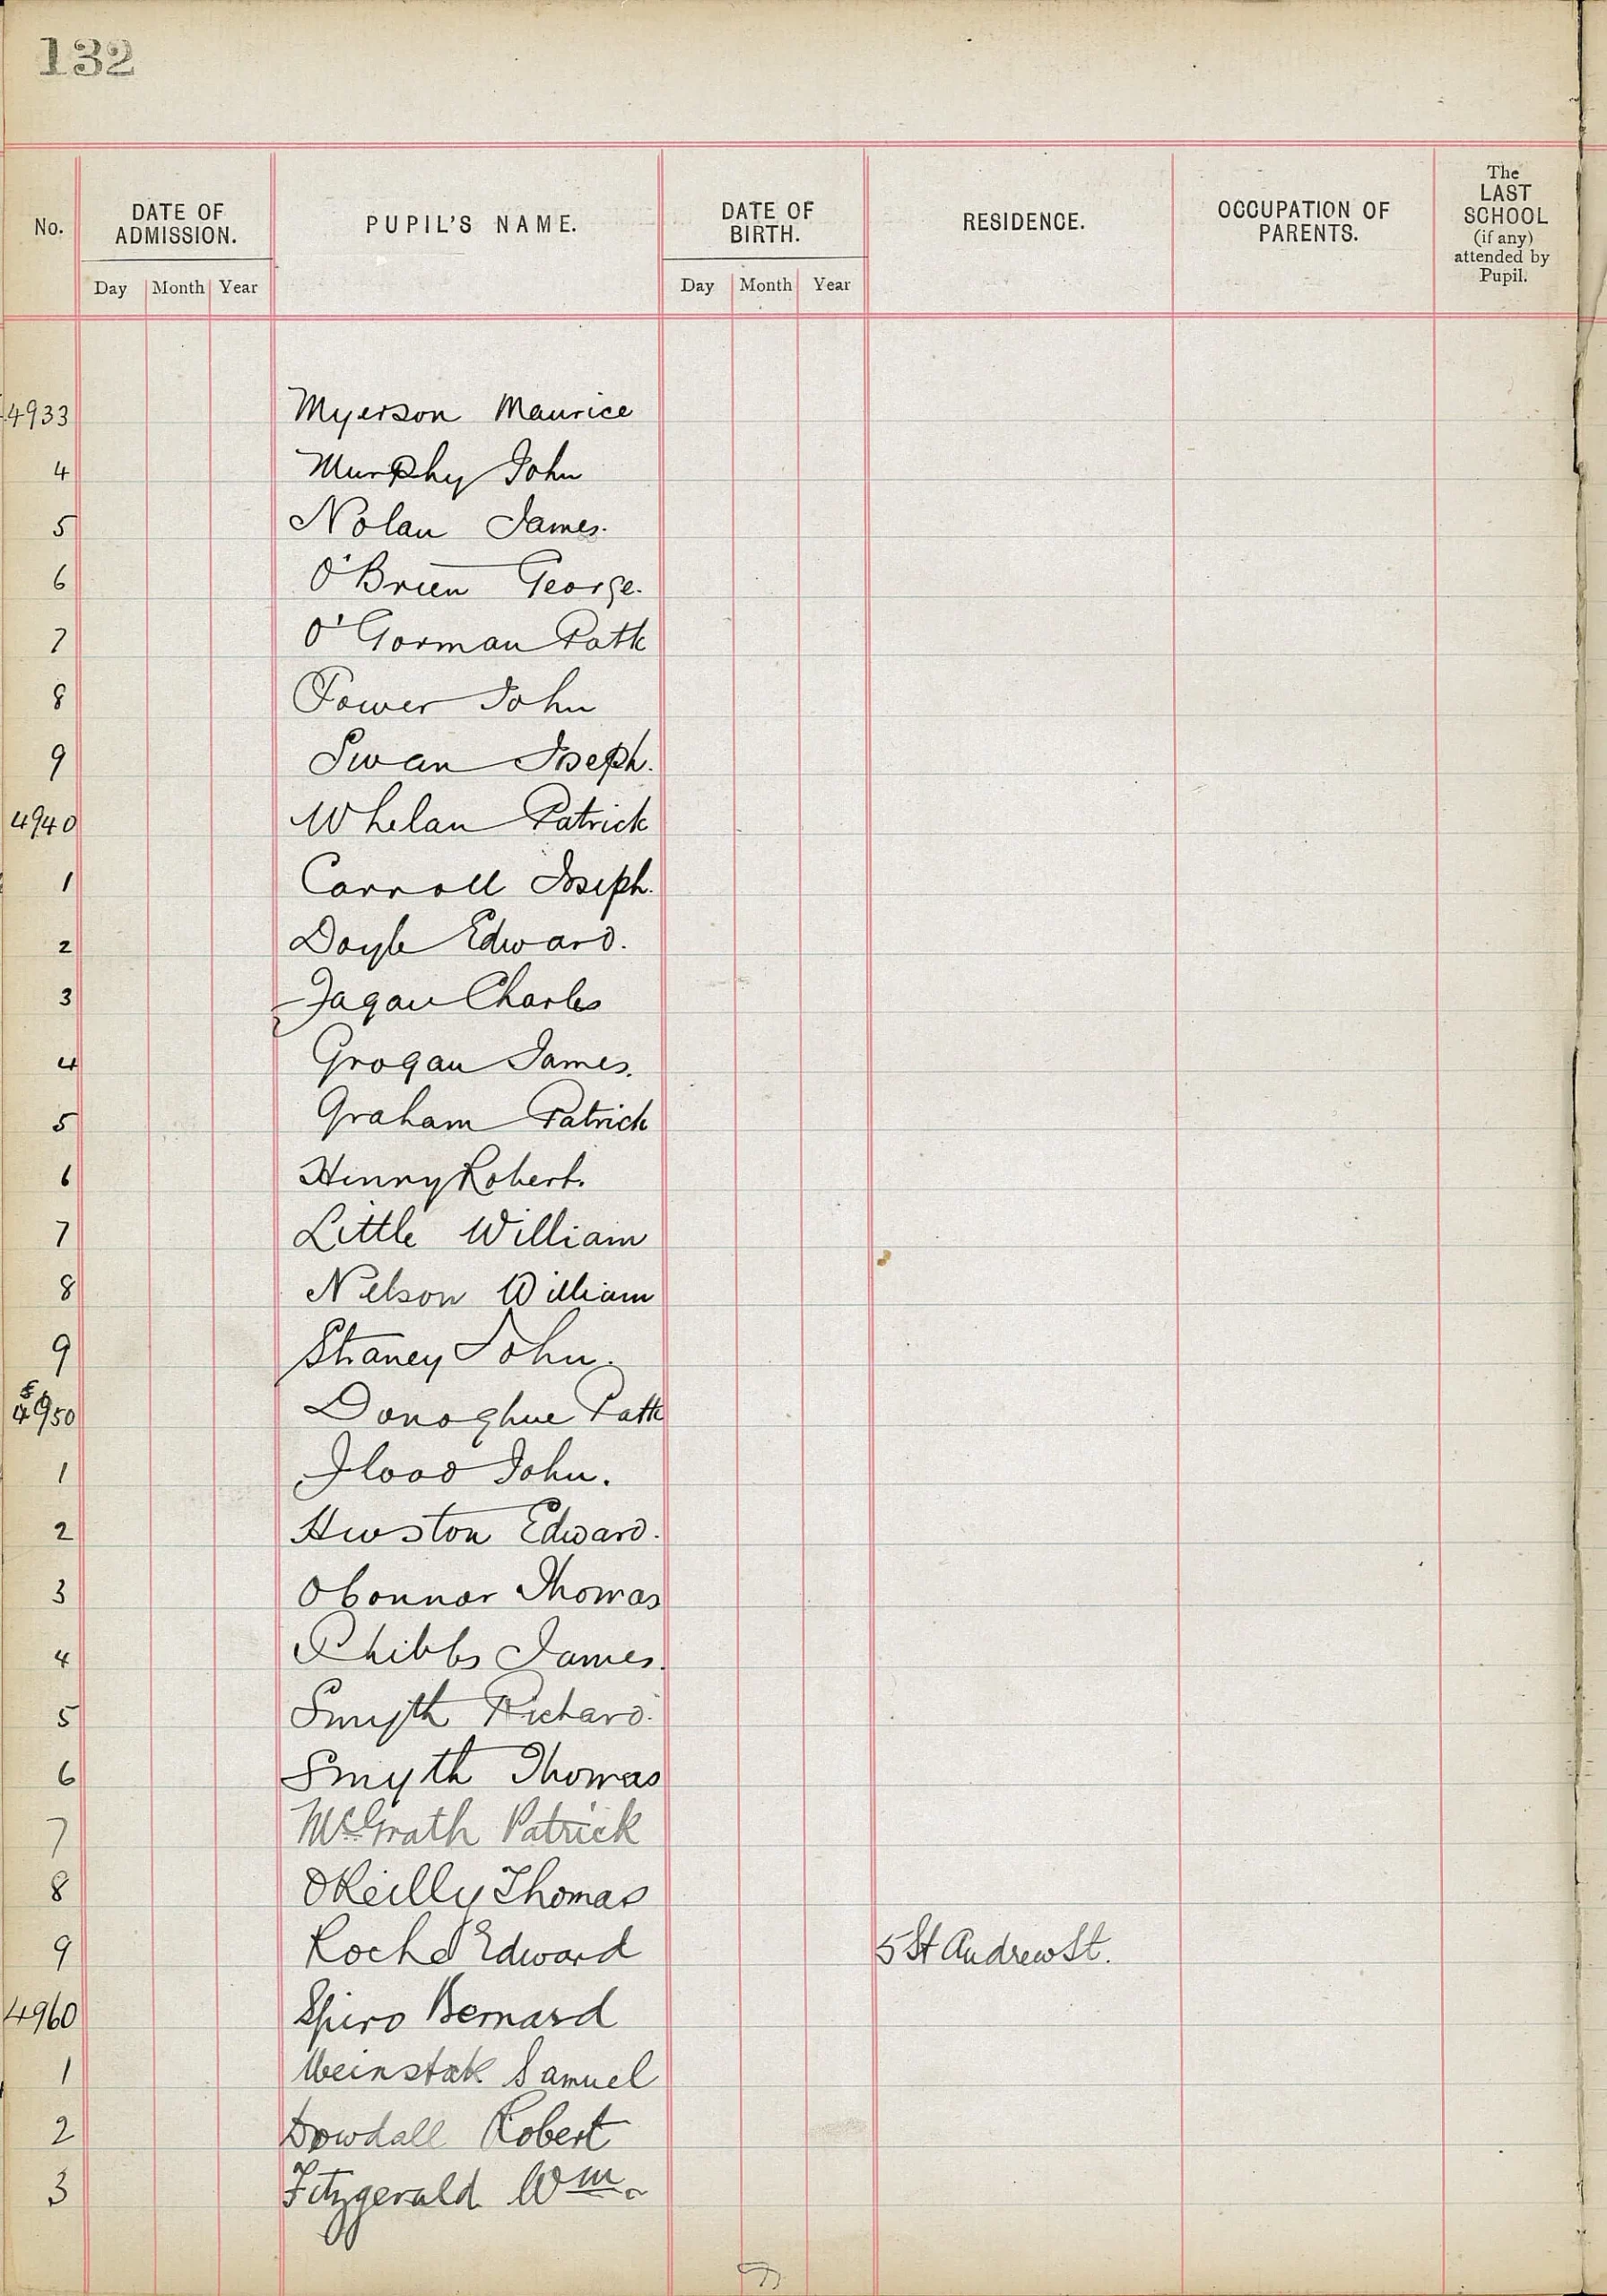 132
No.
DATE OF ADMISSION.
Day Month Year
PUPIL'S NAME.
DATE OF BIRTH.
Day Month Year
RESIDENCE.
OCCUPATION OF PARENTS.
The
LAST
SCHOOL
(if any)
attended by
Pupil.
4933 Myerson Maurice
4 Murphy John
5 Nolan James.
6 O'Brien George.
7 O'Gorman Patk
8 Power John
9 Swan Joseph.
4940 Whelan Patrick
1 Carroll Joseph.
2 Doyle Edward.
3 Fagan Charles
4 Grogan James.
5 Graham Patrick
6 Henry Robert.
7 Little William
8 Nelson William
9 Straney John.
4950 Donoghue Patk
1 Flood John.
2 Hewston Edward.
3 OConnor Thomas
4 Phibbs James.
5 Smyth Richard.
6 Smyth Thomas
7 McGrath Patrick
8 OReilly Thomas
9 Roche Edward 5 St Andrew St.
4960 Spiro Bernard
1 Weinstok Samuel
2 Dowdall Robert
3 Fitzgerald Wm.